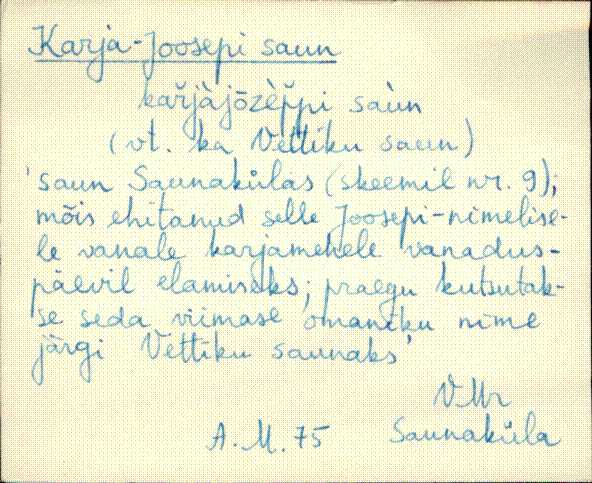 Karja-Joosepi saun
kař̀jàjōzèp̆pi saùn
(vt. ka Vettiku saun)
'saun Saunakülas (skeemil nr. 9);
mõis ehitanud selle Joosepi-nimelise-
le vanale karjamehele vanadus-
päevil elamiseks; praegu kutsutak-
se seda viimase omaniku nime
järgi Vettiku saunaks'
VMr
A.M.75 Saunaküla